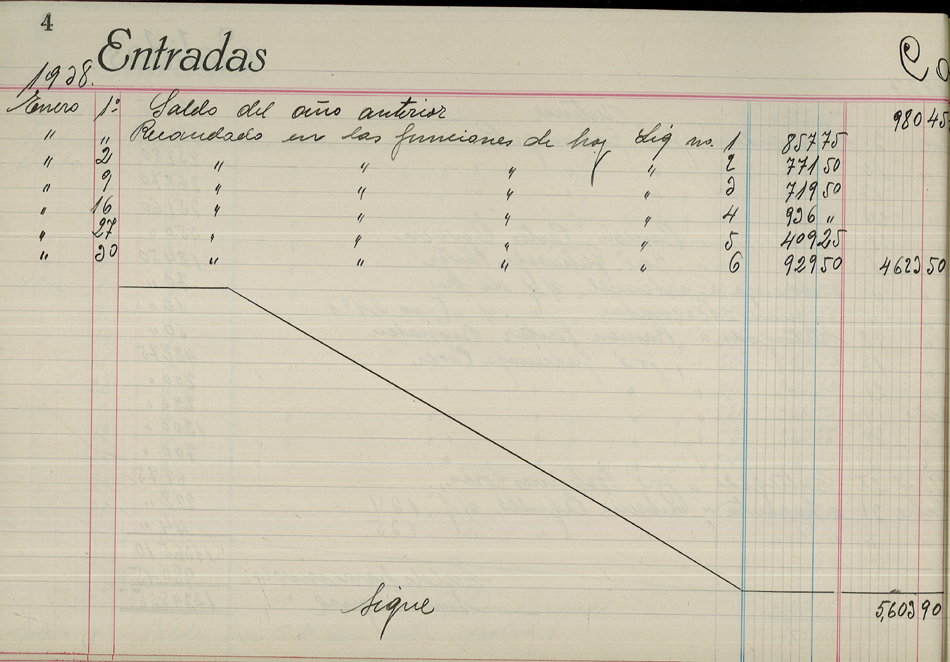 4
Entradas
Ca
1938.
Enero 1º Saldo del año anterior 980 45
" " Recaudado en las funciones de hoy Liq no. 1 857 75
" 2 " " " " 2 771 50
" 9 " " " " 3 719 50
" 16 " " " " 4 936 "
" 27 " " " " 5 409 25
" 30 " " " " 6 929 50 4623 50
Sigue 5,603 90